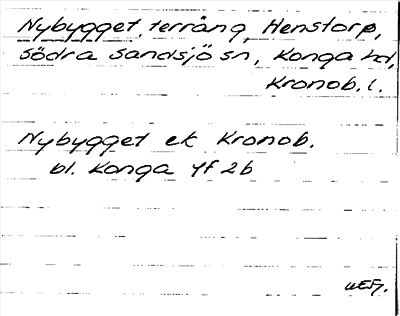 Nybygget, terräng, Henstorp,
Södra Sandsjö sn, Konga hd,
Kronob. l.
Nybygget ek Kronob.
bl. Konga 4f 2b